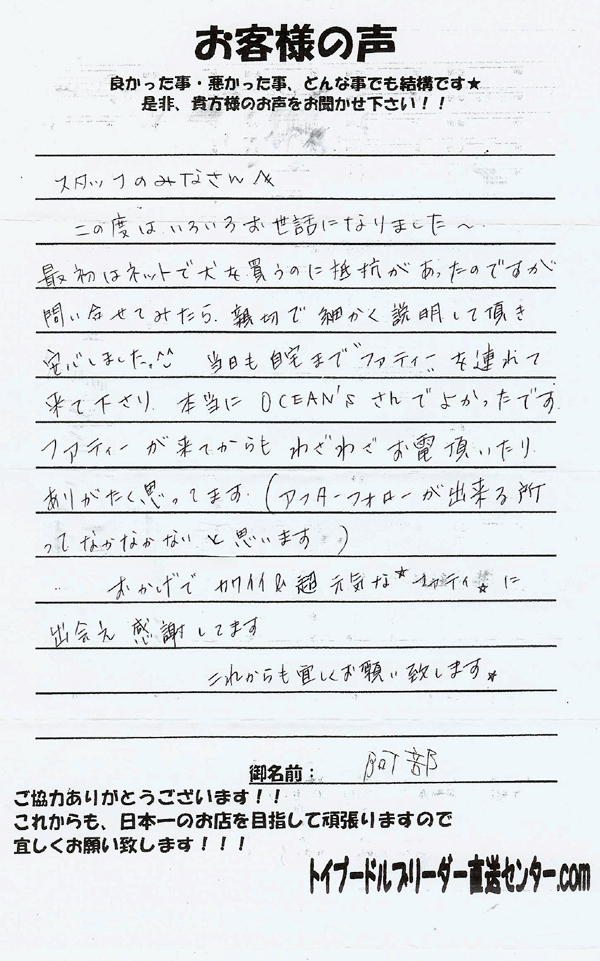 お客様の声
良かった事・悪かった事、どんな事でも結構です★
是非、貴方様のお声をお聞かせ下さい！！
スタッフのみなさんへ
この度は、いろいろお世話になりました〜
最初はネットで犬を買うのに抵抗があったのですが
問い合せてみたら、親切で細かく説明して頂き
安心しました。^^ 当日も自宅まで"ファティー"を連れて
来て下さり、本当にOCEAN'Sさんでよかったです。
ファティーが来てからも わざわざお電頂いたり、
ありがたく思ってます。(アフターフォローが出来る所
ってなかなかないと思います)
おかげで カワイイ&超元気な☆ファティ☆に
出会え感謝してます
これからも宜しくお願い致します☆
御名前： 阿部
ご協力ありがとうございます！！
これからも、日本一のお店を目指して頑張りますので
宜しくお願い致します！！！
トイプードルブリーダー直送センター.com